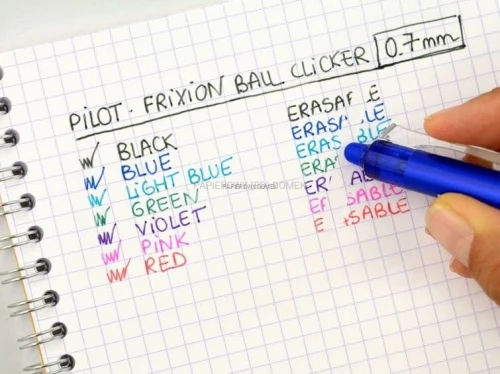 PILOT - FRIXION BALL CLICKER 0.7mm
BLACK
BLUE
LIGHT BLUE
GREEN
VIOLET
PINK
RED
ERASA LE
ERAS LE
ERAS BLE
ERA
ER ABLE
E SABLE
E SABLE